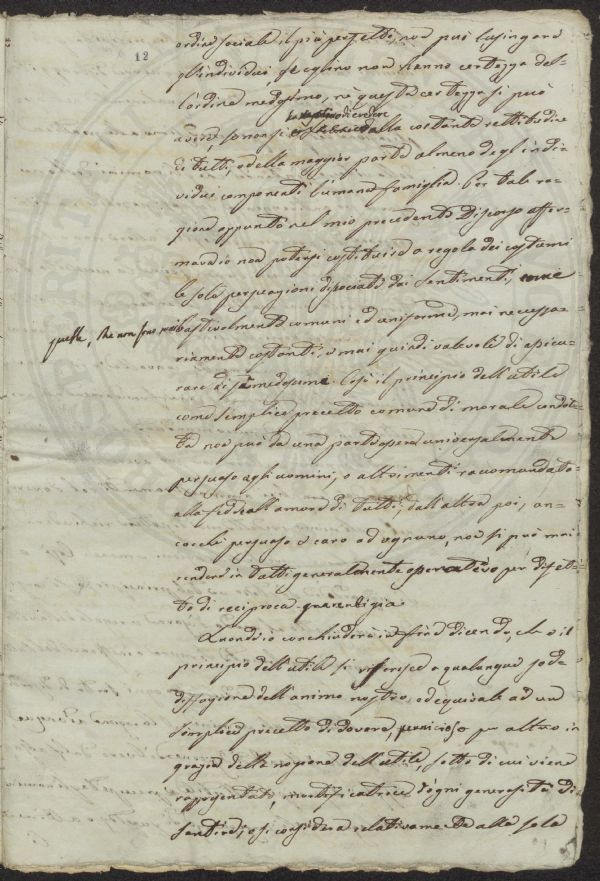 12
ordine sociale il più perfetto, non può lusingare
gl'individui se eglino non hanno certezza del-
l'ordine medesimo, nè questa certezza si può
avere, se non si dalla costante rettitudine
di tutti, o della maggior parte almeno degl'indivi-
vidui componenti l'umana famiglia. Per tale ra-
gione appunto nel mio precedente Discorso affer-
mava io non potersi costituire a regola dei costumi
le sole persuasioni dissociate dai sentimenti, come
quelle, che non sono mai bastevolmente comuni ed uniformi, mai necessa-
riamente costanti, e mai quindi valevoli di assicu-
rare di se medesime. Così il principio dell'utile
come semplice precetto comune di morale condot-
ta non può da una parte essere universalmente
persuaso agli uomini, o altrimenti raccomandato
alla fede all'amore di tutti; dall'altra poi, an-
cocchè persuaso e caro ad ognuno, non si può mai
rendere in fatti generalmente operativo per difet-
to di reciproca guarentigia.
Quando io conchiuderò in fine dicendo, che o il
principio dell'utile si riferisce a qualunque soddi-
disfazione dell'animo nostro, ed equivale ad un
semplice precetto di dovere, pernicioso per altro in
grazia della nozione dell'utile, sotto di cui viene
rappresentato, mortificatrice d'ogni generosità di
sentire; o si considera relativamente alla sola